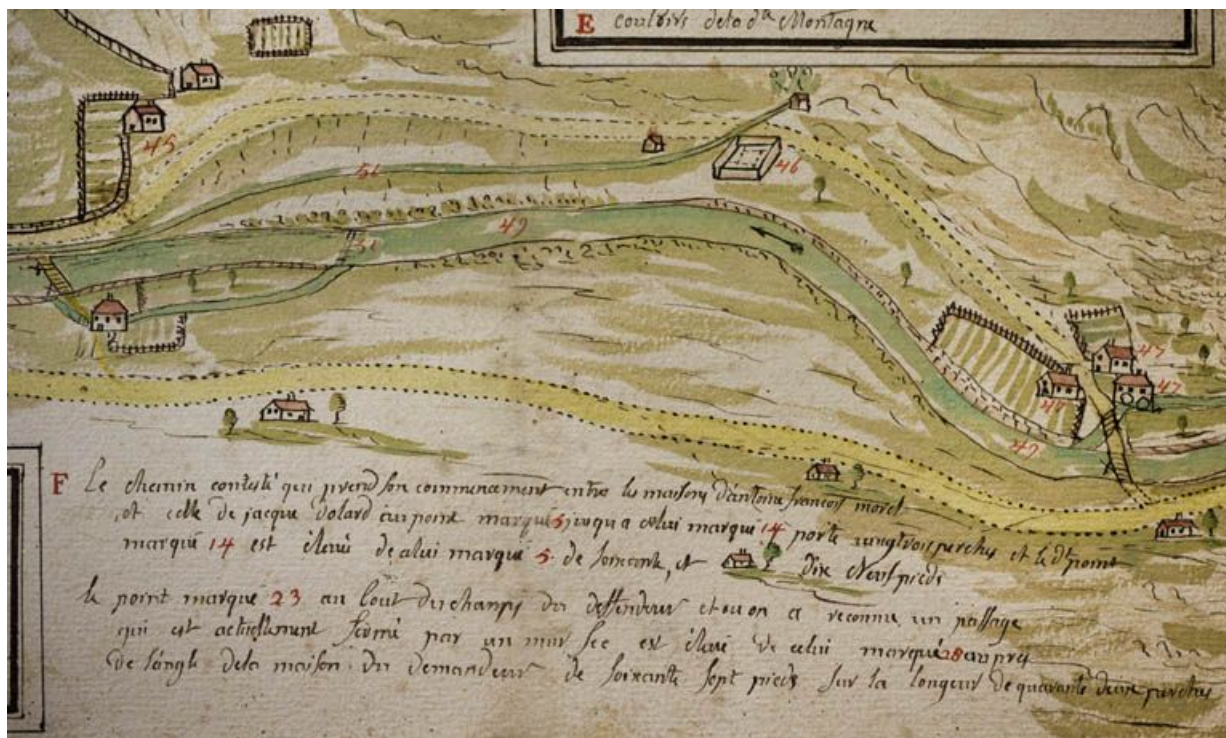 E couloirs dela dte Montagne
45
51
46
51
49
47
47
47
49
F Le chemin contesté qui prend son commencement entre les maisons d'antoine francois morel
et celle de jacque dolard au point marqué 5 jusqu a celui marqué 14 porte vingt trois perches et le dt point
marqué 14 est élevé de celui marqué 5 de soixante, et Dix Neuf pieds
le point marque 23 au bout du champs du deffendeur et ou on a reconnu un passage
qui est actuellement fermé par un mur sec est élevé de celui marqué 28 au pres
de l'angle dela maison du demandeur de soixante sept pieds sur la longeur de quarante deux perches